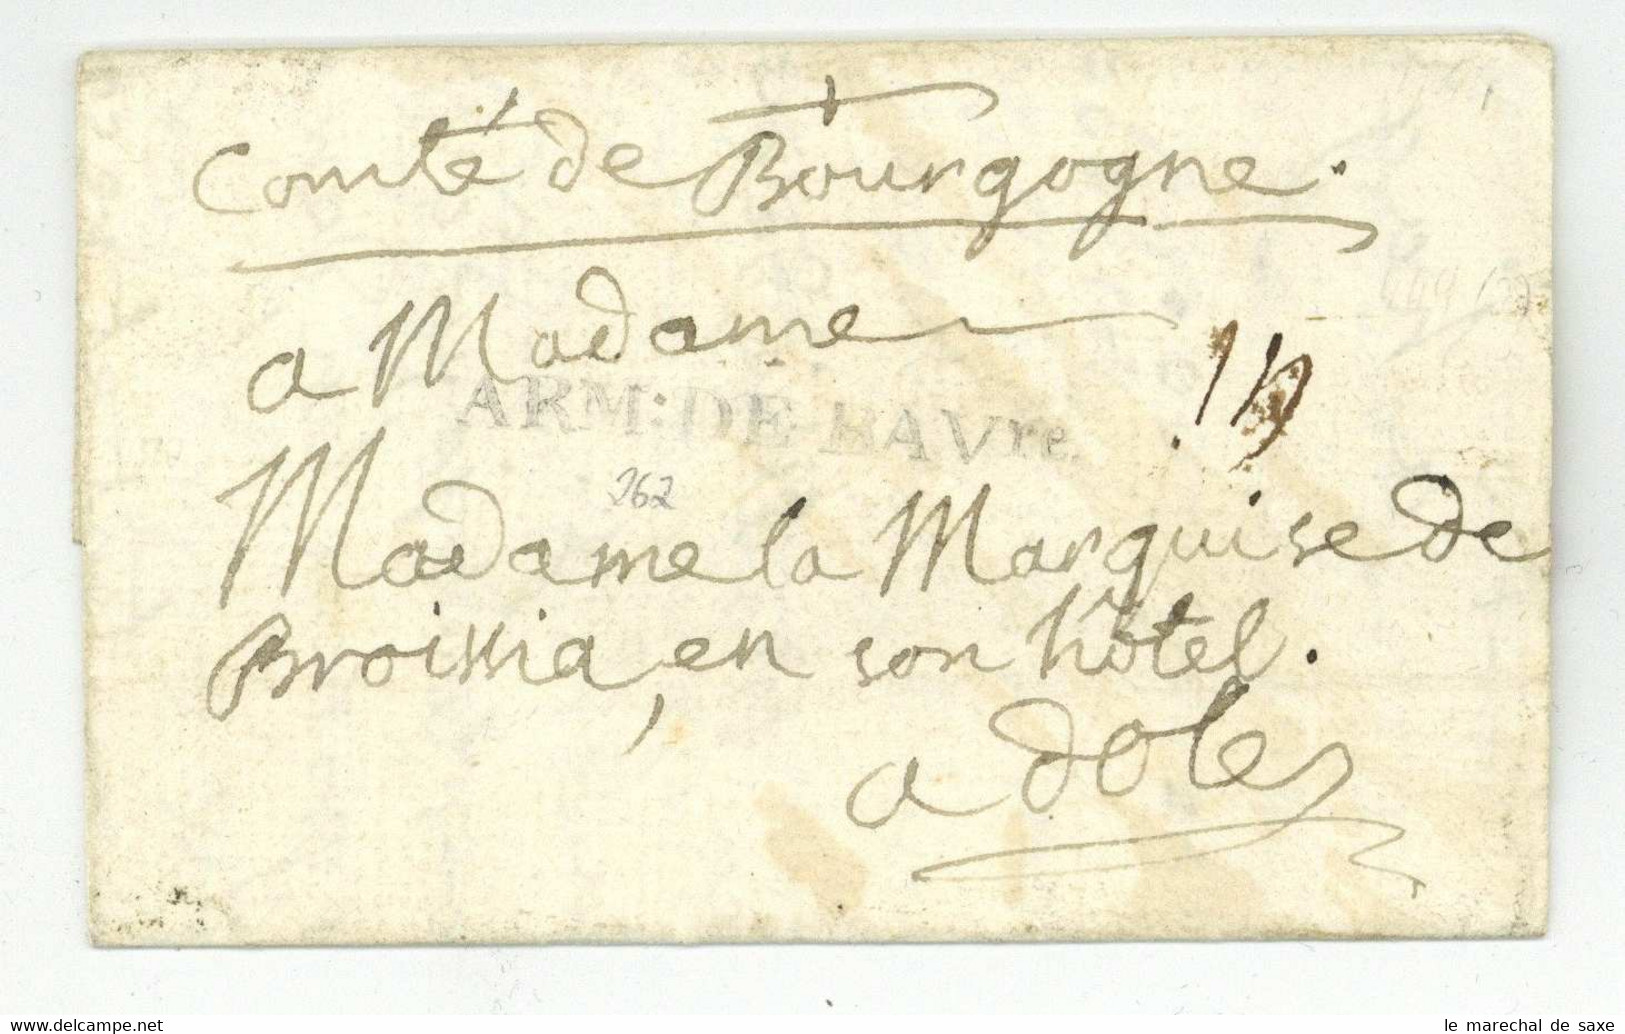 Comté de Bourgogne.
a Madame
ARM: DE BAVre
262
Madame la Marquise de
Broissia, en son hôtel.
a dole
www.delcampe.net
le marechal de saxe